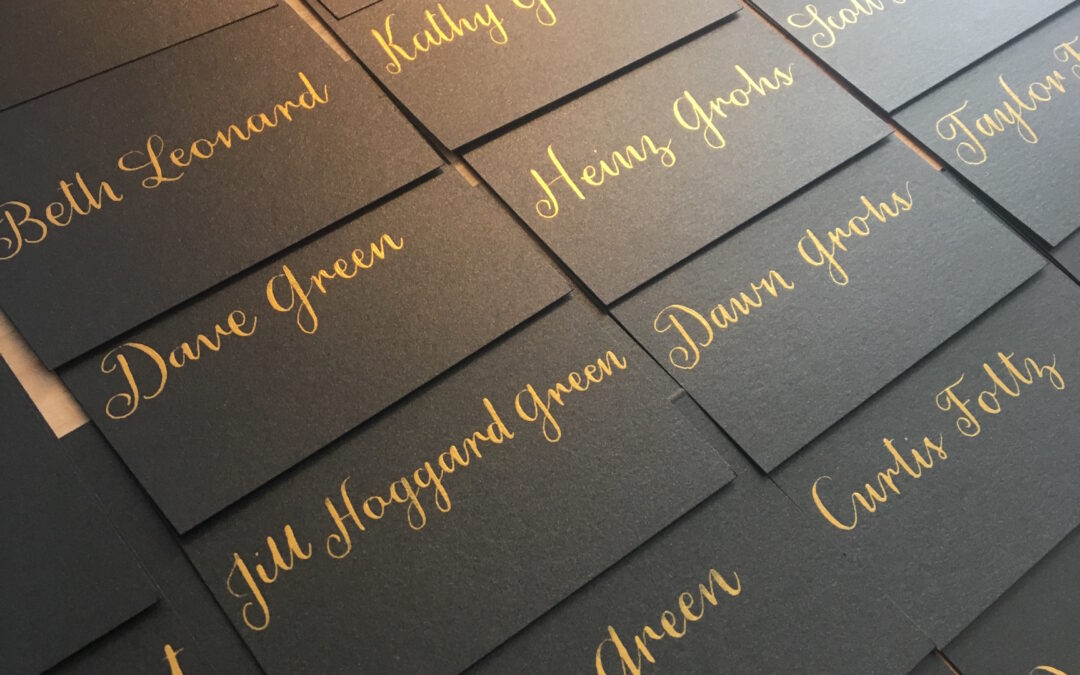 Kathy
Beth Leonard
Heinz Grohs
Taylor
Dave Green
Dawn Grohs
Jill Hoggard Green
Curtis Foltz
Green